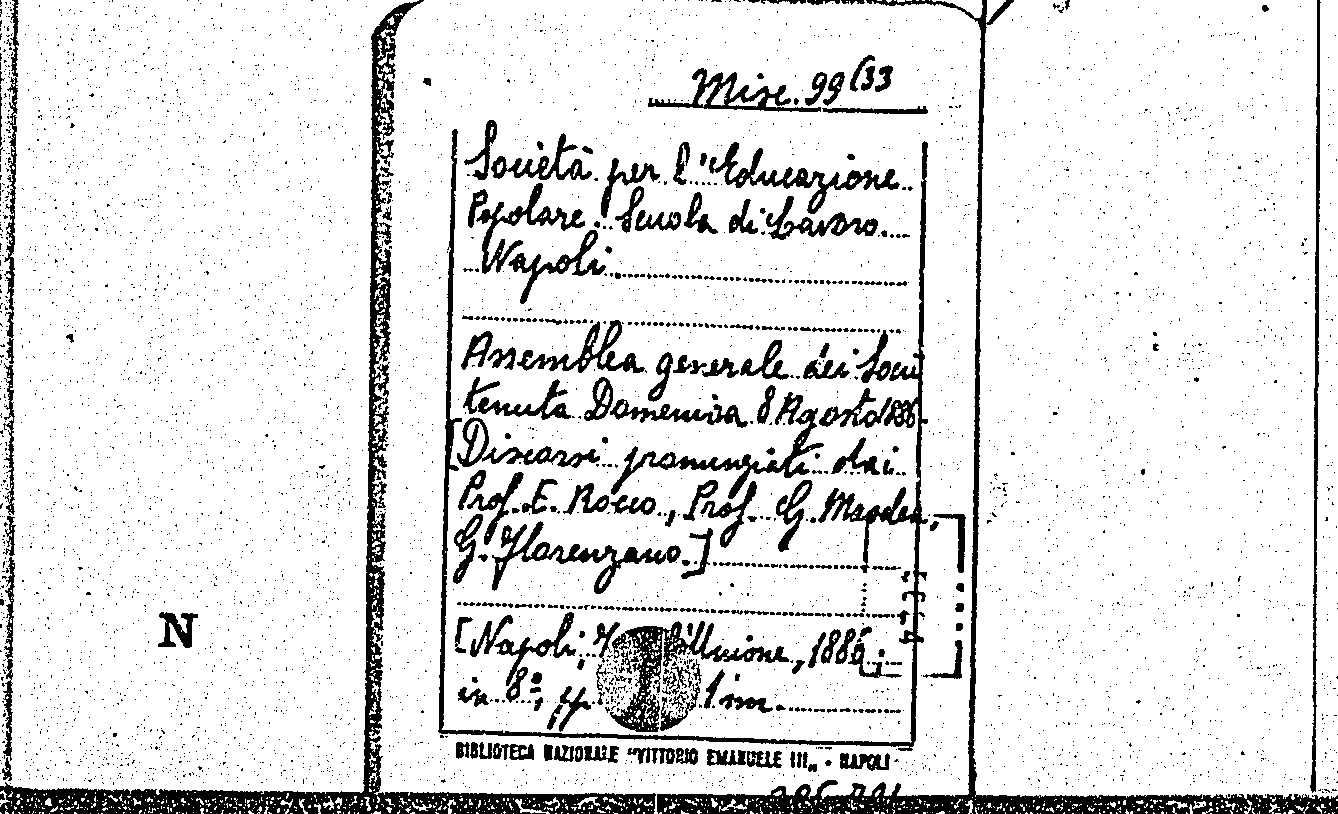 Misc. 99 (33
Società per l'Educazione
Popolare. Scuola di Lavoro.
Napoli.
Assemblea generale dei Soci
tenuta Domenica 8 Agosto 1886.
[Discorsi pronunziati dai
Prof. E. Rocco, Prof. G.
G. Florenzano.]
N
[Napoli, 1886;
in 8º, pp. 1 im.
BIBLIOTECA NAZIONALE "VITTORIO EMANUELE III„ - NAPOLI